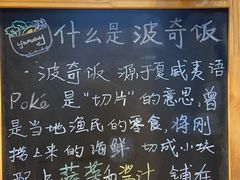 yummy
什么是波奇饭
· 波奇饭 源于夏威夷语
Poke 是“切片”的意思,曾
是当地渔民的零食,将刚
捞上来的海鲜 切成小块
配上蔬菜和酱汁 铺在